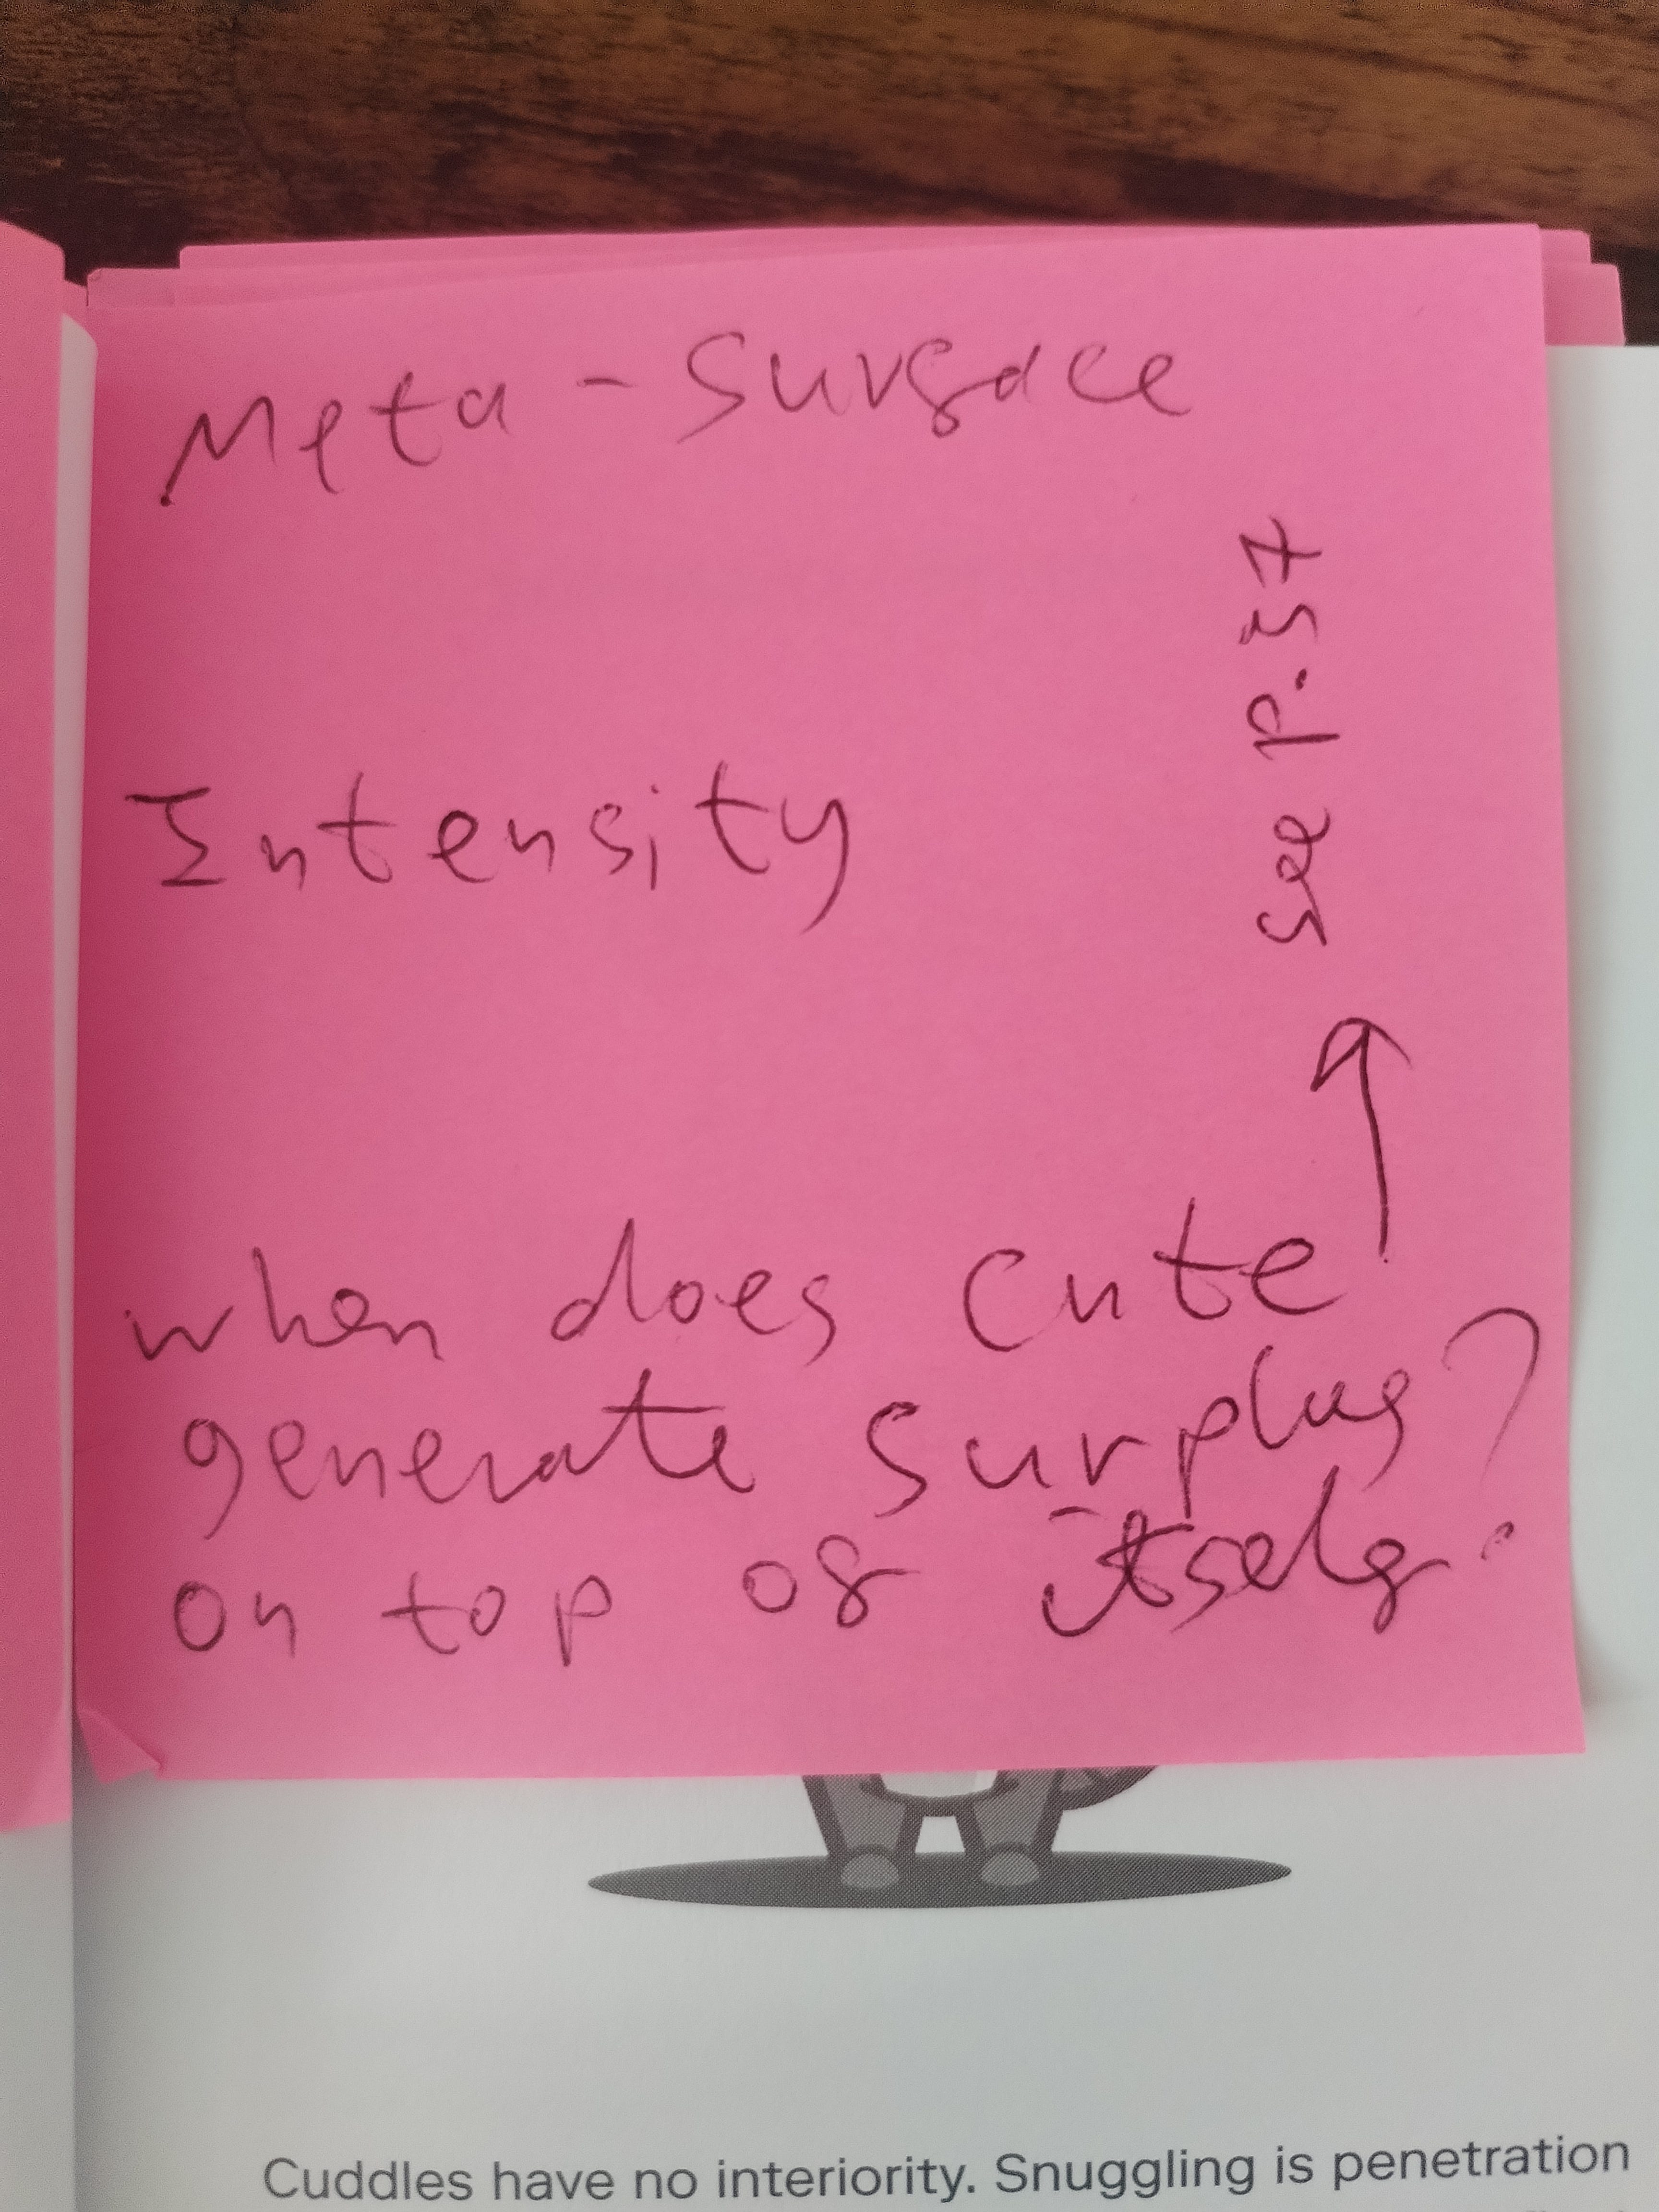 Meta-Surface
see p.37
Intensity
when does cute
generate surplus
on top of itself?
Cuddles have no interiority. Snuggling is penetration